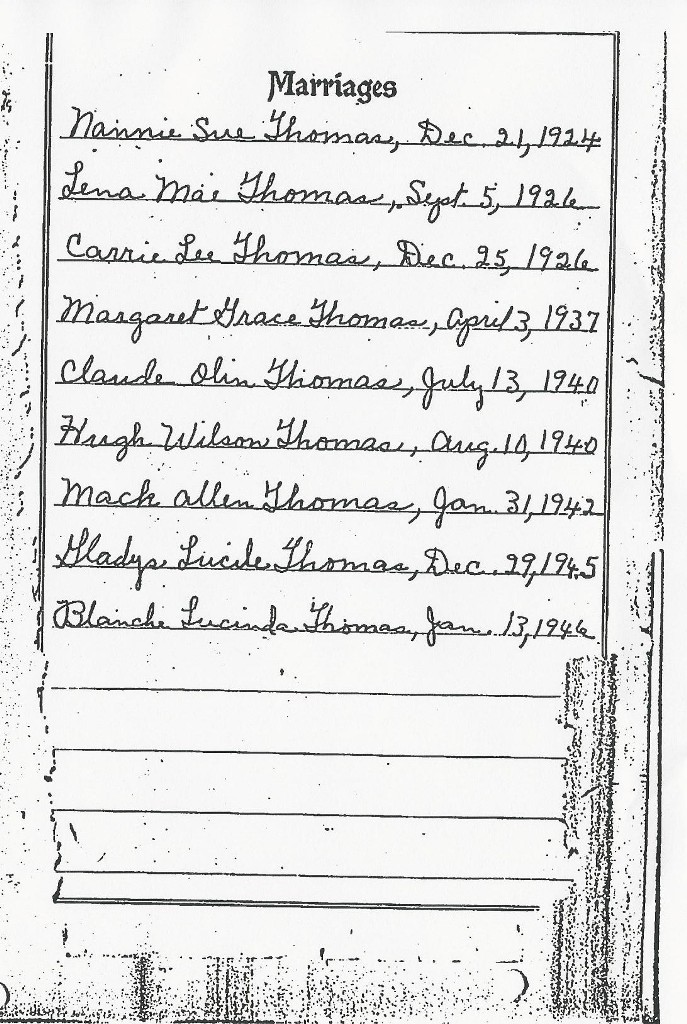 Marriages
Nannie Sue Thomas, Dec. 21, 1924
Lena Mae Thomas, Sept. 5, 1926
Carrie Lee Thomas, Dec. 25, 1926
Margaret Grace Thomas, April 3, 1937
Claude Olin Thomas, July 13, 1940
Hugh Wilson Thomas, Aug. 10, 1940
Mack Allen Thomas, Jan. 31, 1942
Gladys Lucile Thomas, Dec. 29, 1945
Blanche Lucinda Thomas, Jan. 13, 1946